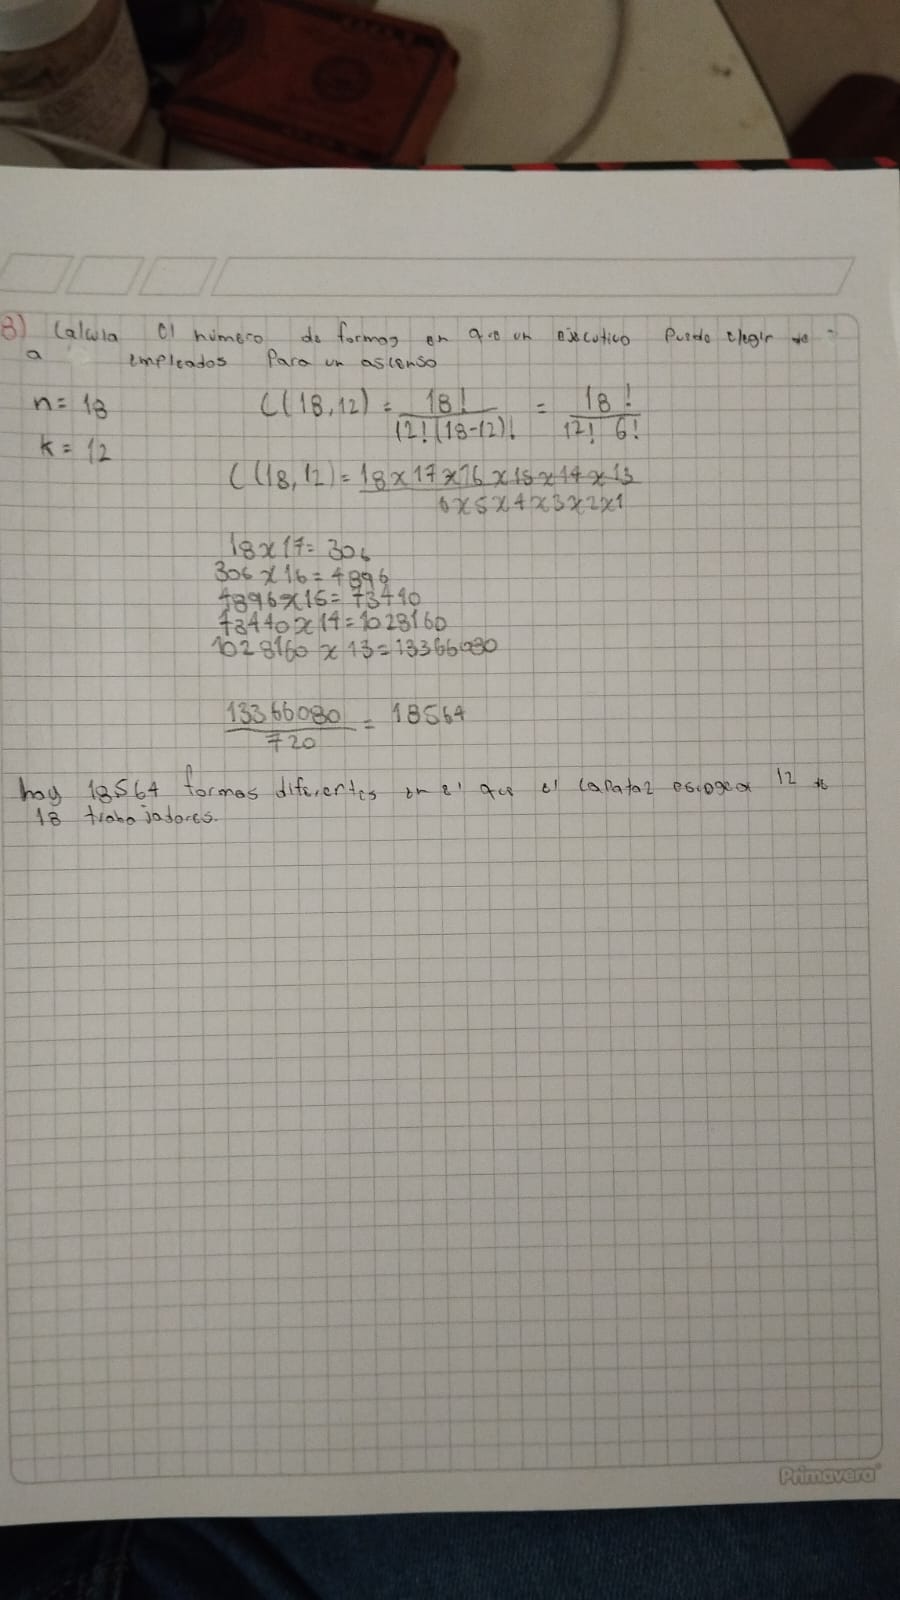 8) Calcula el número de formas en que un ejecutivo puede elegir de
a empleados para un ascenso
n = 18 C(18,12) = 18! / 12!(18-12)! = 18! / 12! 6!
k = 12
C(18,12) = 18x17x16x15x14x13 / 6x5x4x3x2x1
18x17= 306
306x16=4896
4896x15=73440
73440x14=1028160
1028160 x 13=13366080
13366080 / 720 = 18564
hay 18564 formas diferentes en el que el capataz escoger 12 de
18 trabajadores.
Primavera